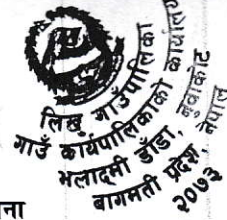 लिखु गाउँपालिका
गाउँ कार्यपालिकाको कार्यालय
भलादमी डाँडा, नुवाकोट
बागमती प्रदेश, नेपाल
२०७३
ना